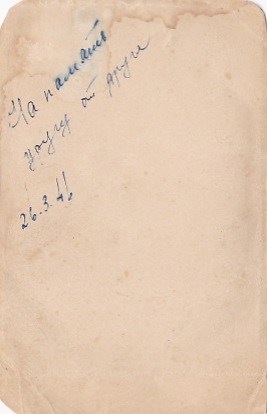 На память
другу от друга
26.3.46